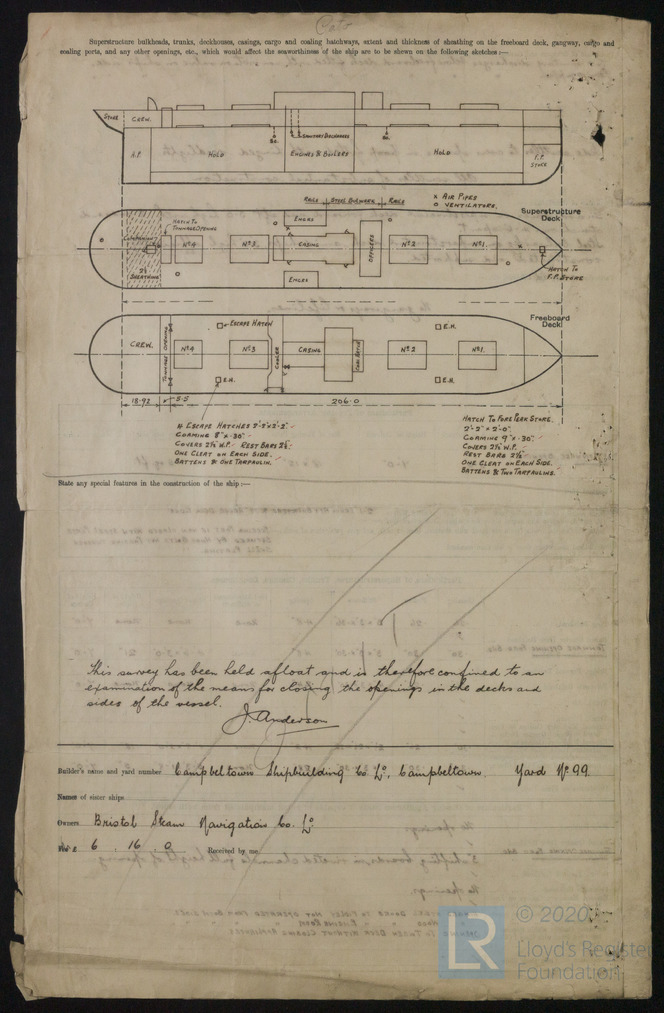 Cato
Superstructure bulkheads, trunks, deckhouses, casings, cargo and coaling hatchways, extent and thickness of sheathing on the freeboard deck, gangway, cargo and
coaling ports, and any other openings, etc., which would affect the seaworthiness of the ship are to be shewn on the following sketches:—
STORE
CREW.
SANITARY DISCHARGES
A.P.
HOLD
ENGINES & BOILERS
HOLD
F.P. STORE
RAILS STEEL BULWARK RAILS
x AIR PIPES
o VENTILATORS.
Superstructure
Deck
HATCH TO
TONNAGE OPENING
ENGRS
COMPANION
No4
No3
CASING
OFFICERS
No2
No1.
2½"
SHEATHING
ENGRS
HATCH TO
F.P. STORE
Freeboard
Deck
ESCAPE HATCH
E.H.
CREW.
TONNAGE OPENING
No4
No3
CASING
No2
No1.
E.H.
E.H.
18.92
5.5
206.0
4 ESCAPE HATCHES 2'-2" x 2'-2"
COAMING 8" x .30"
COVERS 2½" W.P. REST BARS 2½"
ONE CLEAT ON EACH SIDE.
BATTENS & ONE TARPAULIN.
HATCH TO FORE PEAK STORE.
2'-2" x 2'-0"
COAMING 9" x .30"
COVERS 2½" W.P.
REST BARS 2½"
ONE CLEAT ON EACH SIDE.
BATTENS & TWO TARPAULINS.
State any special features in the construction of the ship:—
This survey has been held afloat and is therefore confined to an
examination of the means for closing the openings in the decks and
sides of the vessel.
J. Anderson
Builder's name and yard number Campbeltown Shipbuilding Co Ld. Campbeltown. Yard No 99.
Names of sister ships
Owners Bristol Steam Navigation Co. Ld.
Fee £ 6 . 16 . 0 Received by me
LR
© 2020
Lloyd's Register
Foundation